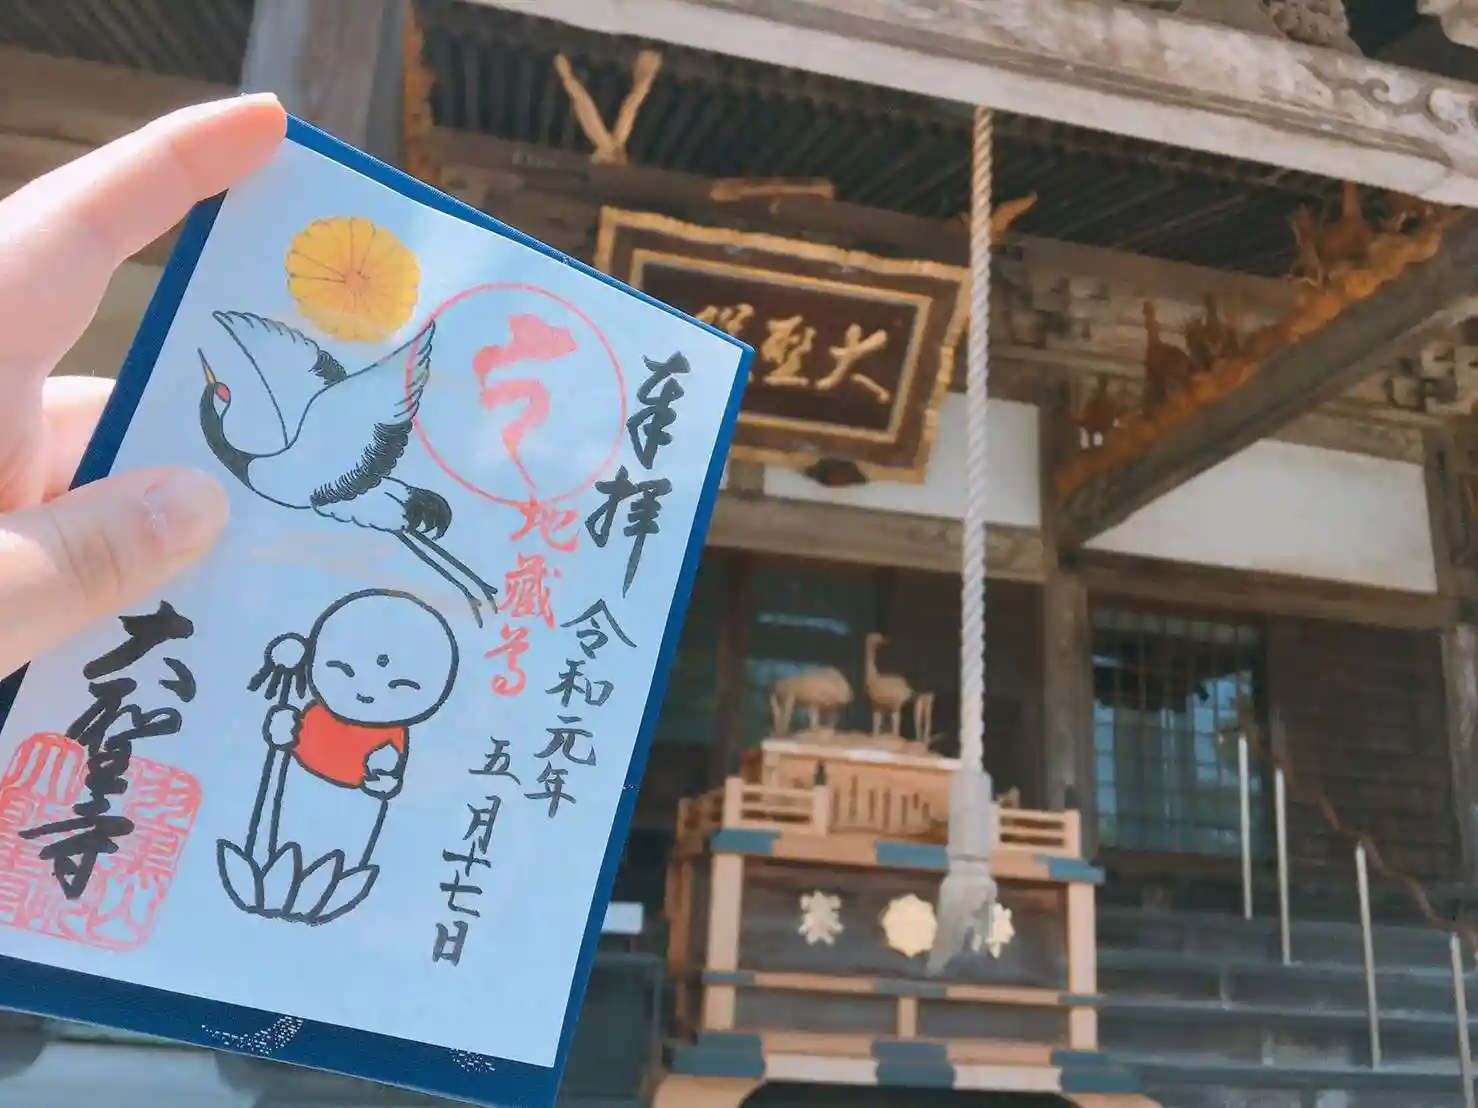 奉拝
令和元年
五月十七日
地蔵尊
大聖寺
大聖